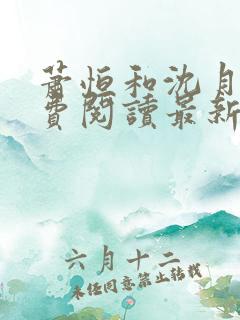 萧恒和沈月
费阅讀最新
六月十二
未经同意禁止转载